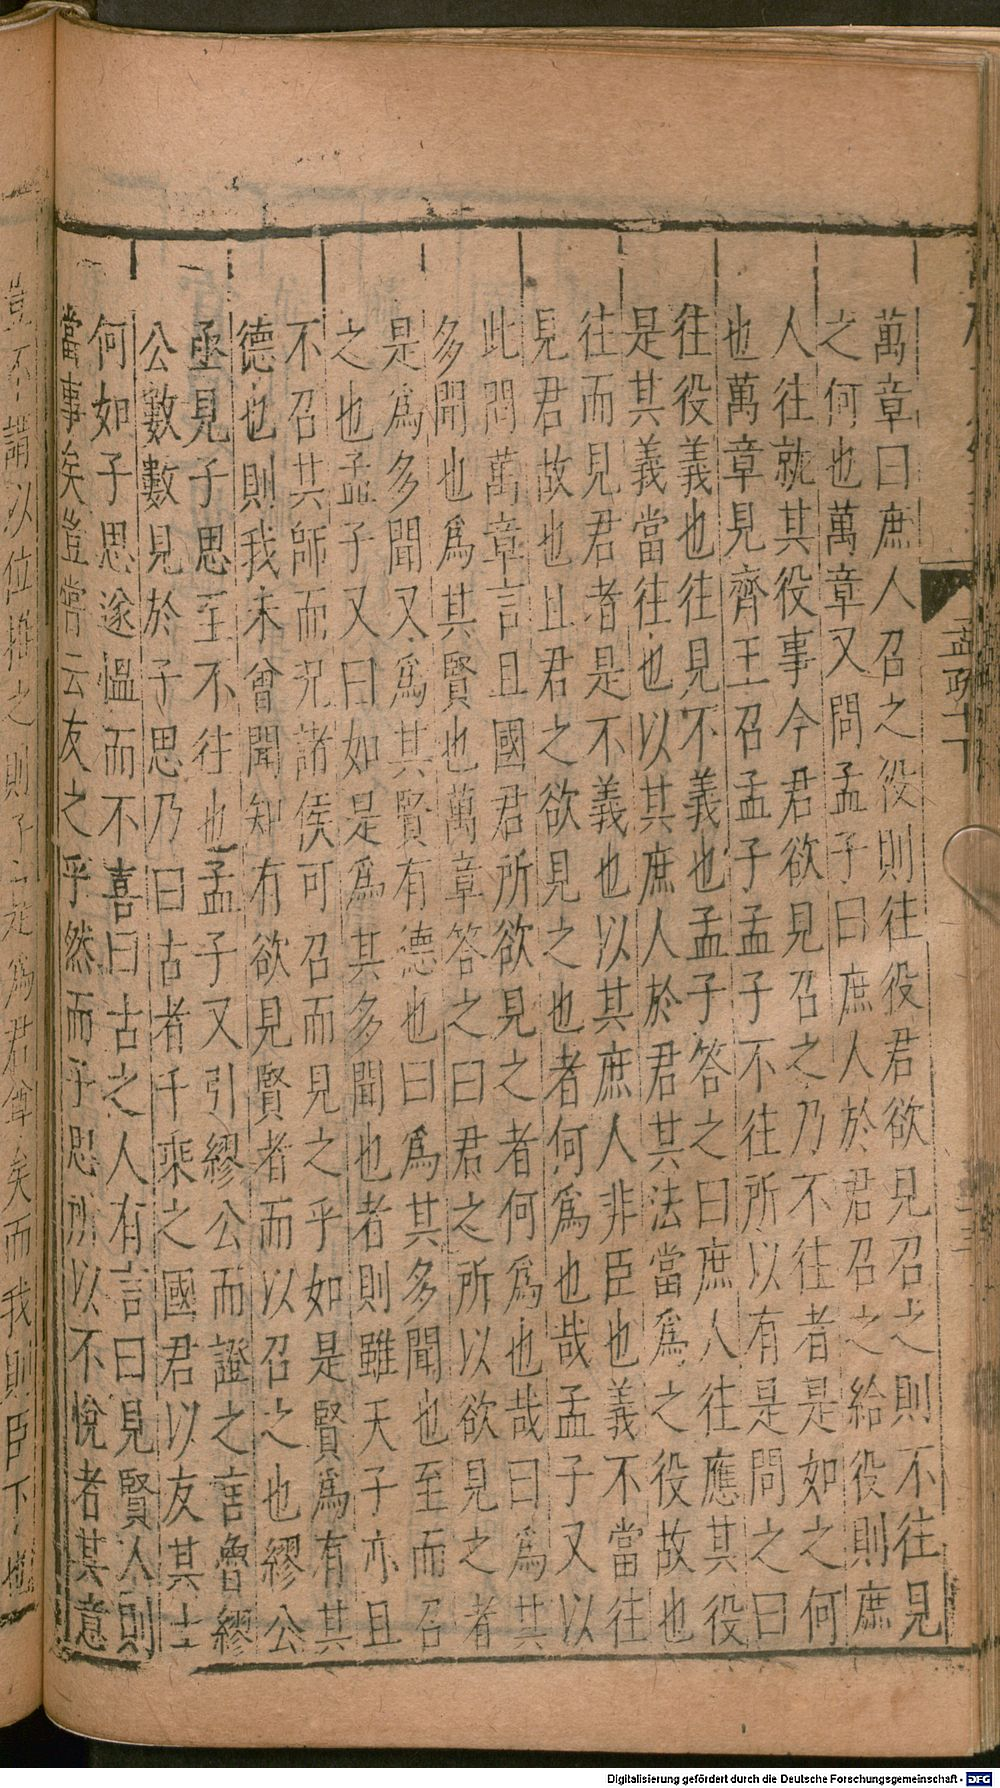 孟疏十
萬章曰庶人召之役則往役君欲見召之則不往見
之何也萬章又問孟子曰庶人於君召之給役則庶
人往就其役事今君欲見召之乃不往者是如之何
也萬章見齊王召孟子孟子不往所以有是問之曰
往役義也往見不義也孟子答之曰庶人往應其役
是其義當往也以其庶人於君其法當爲之役故也
往而見君者是不義也以其庶人非臣也義不當往
見君故也且君之欲見之也者何爲也哉孟子又以
此問萬章言且國君所欲見之者何爲也哉曰爲其
多聞也爲其賢也萬章答之曰君之所以欲見之者
是爲多聞又爲其賢有德也曰爲其多聞也至而召
之也孟子又曰如是爲其多聞也者則雖天子亦且
不召其師而況諸侯可召而見之乎如是賢爲有其
德也則我未曾聞知有欲見賢者而以召之也繆公
亟見子思至不往也孟子又引繆公而證之言魯繆
公數數見於子思乃曰古者千乘之國君以友其士
何如子思遂慍而不喜曰古之人有言曰見賢人則
當事矣豈嘗云友之乎然而子思所以不悅者其意
豈不謂以位推之則子之是爲君尊矣而我則臣下也
Digitalisierung gefördert durch die Deutsche Forschungsgemeinschaft - DFG